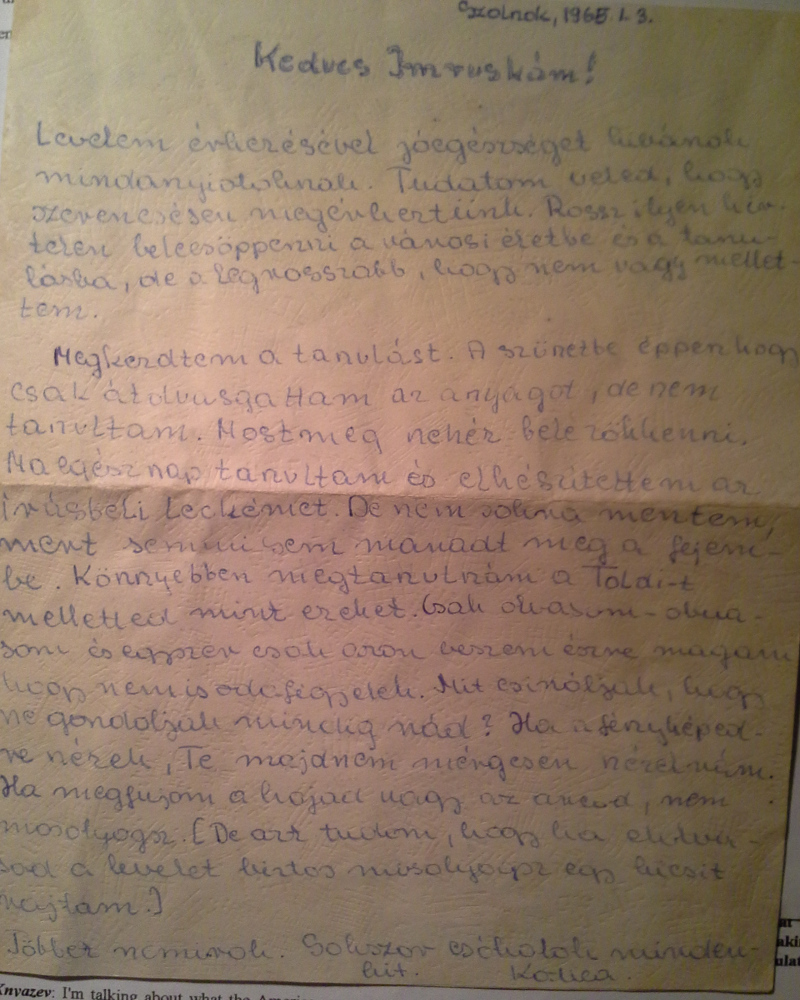 Szolnok, 1965. I. 3.
Kedves Imruskám!
Levelem érkezésével jóegészséget kivánok
mindanyiotoknak. Tudatom veled, hogy
szerencsésen megérkeztünk. Rossz ilyen hir-
telen belecsöppenni a városi életbe és a tanu-
lásba, de a legrosszabb, hogy nem vagy mellet-
tem.
Megkezdtem a tanulást. A szünetbe éppenhogy
csak átolvasgattam az anyagot, de nem
tanultam. Mostmeg nehéz bele zökkenni.
Ma egész nap tanultam és elkészítettem az
írásbeli leckémet. De nem sokra mentem,
mert semmi sem maradt meg a fejem-
be. Könnyebben megtanulnám a Toldi-t
melletted mint ezeket. Csak olvasom-olva-
som és egyszer csak azon veszem észre magam
hogy nem is odafigyelek. Mit csináljak, hogy
ne gondoljak mindig rád? Ha a fényképed-
re nézek, Te majdnem mérgesen nézel rám.
Ha megfuzom a hajad vagy az arcod, nem
mosolyogsz. [De azt tudom, hogy ha elolva-
sod a levelet biztos mosolyogsz egy kicsit
rajtam.]
Többet nem irok. Sokszor csókolok minden-
kit.